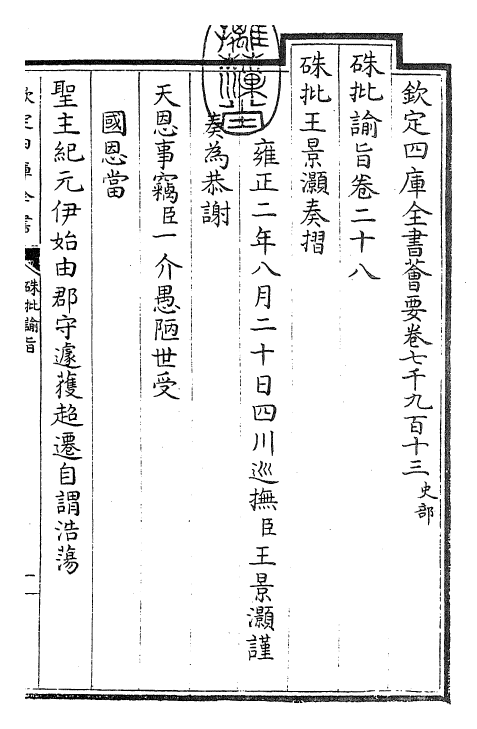 欽定四庫全書薈要卷七千九百十三 史部
硃批諭旨卷二十八
硃批王景灝奏摺
雍正二年八月二十日四川巡撫臣王景灝謹
奏為恭謝
天恩事竊臣一介愚陋世受
國恩當
聖主紀元伊始由郡守遽蒦超遷自謂浩蕩
欽定四庫全書
硃批諭旨
一